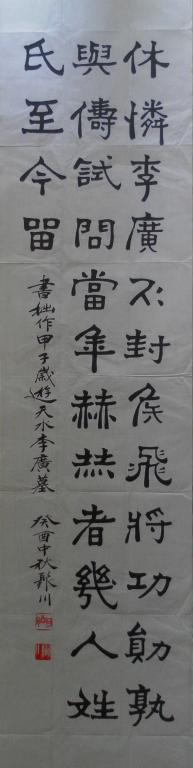 休憐李廣不封侯飛將功勛孰
與儔試問當年赫赫者幾人姓
氏至今留
書拙作甲子歲遊天水李廣墓 癸酉中秋